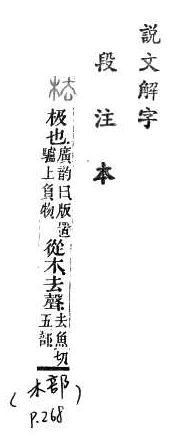 說文解字
段注本
极也廣韵曰版置驢上負物從木去聲去魚切五部
(木部)
p.268